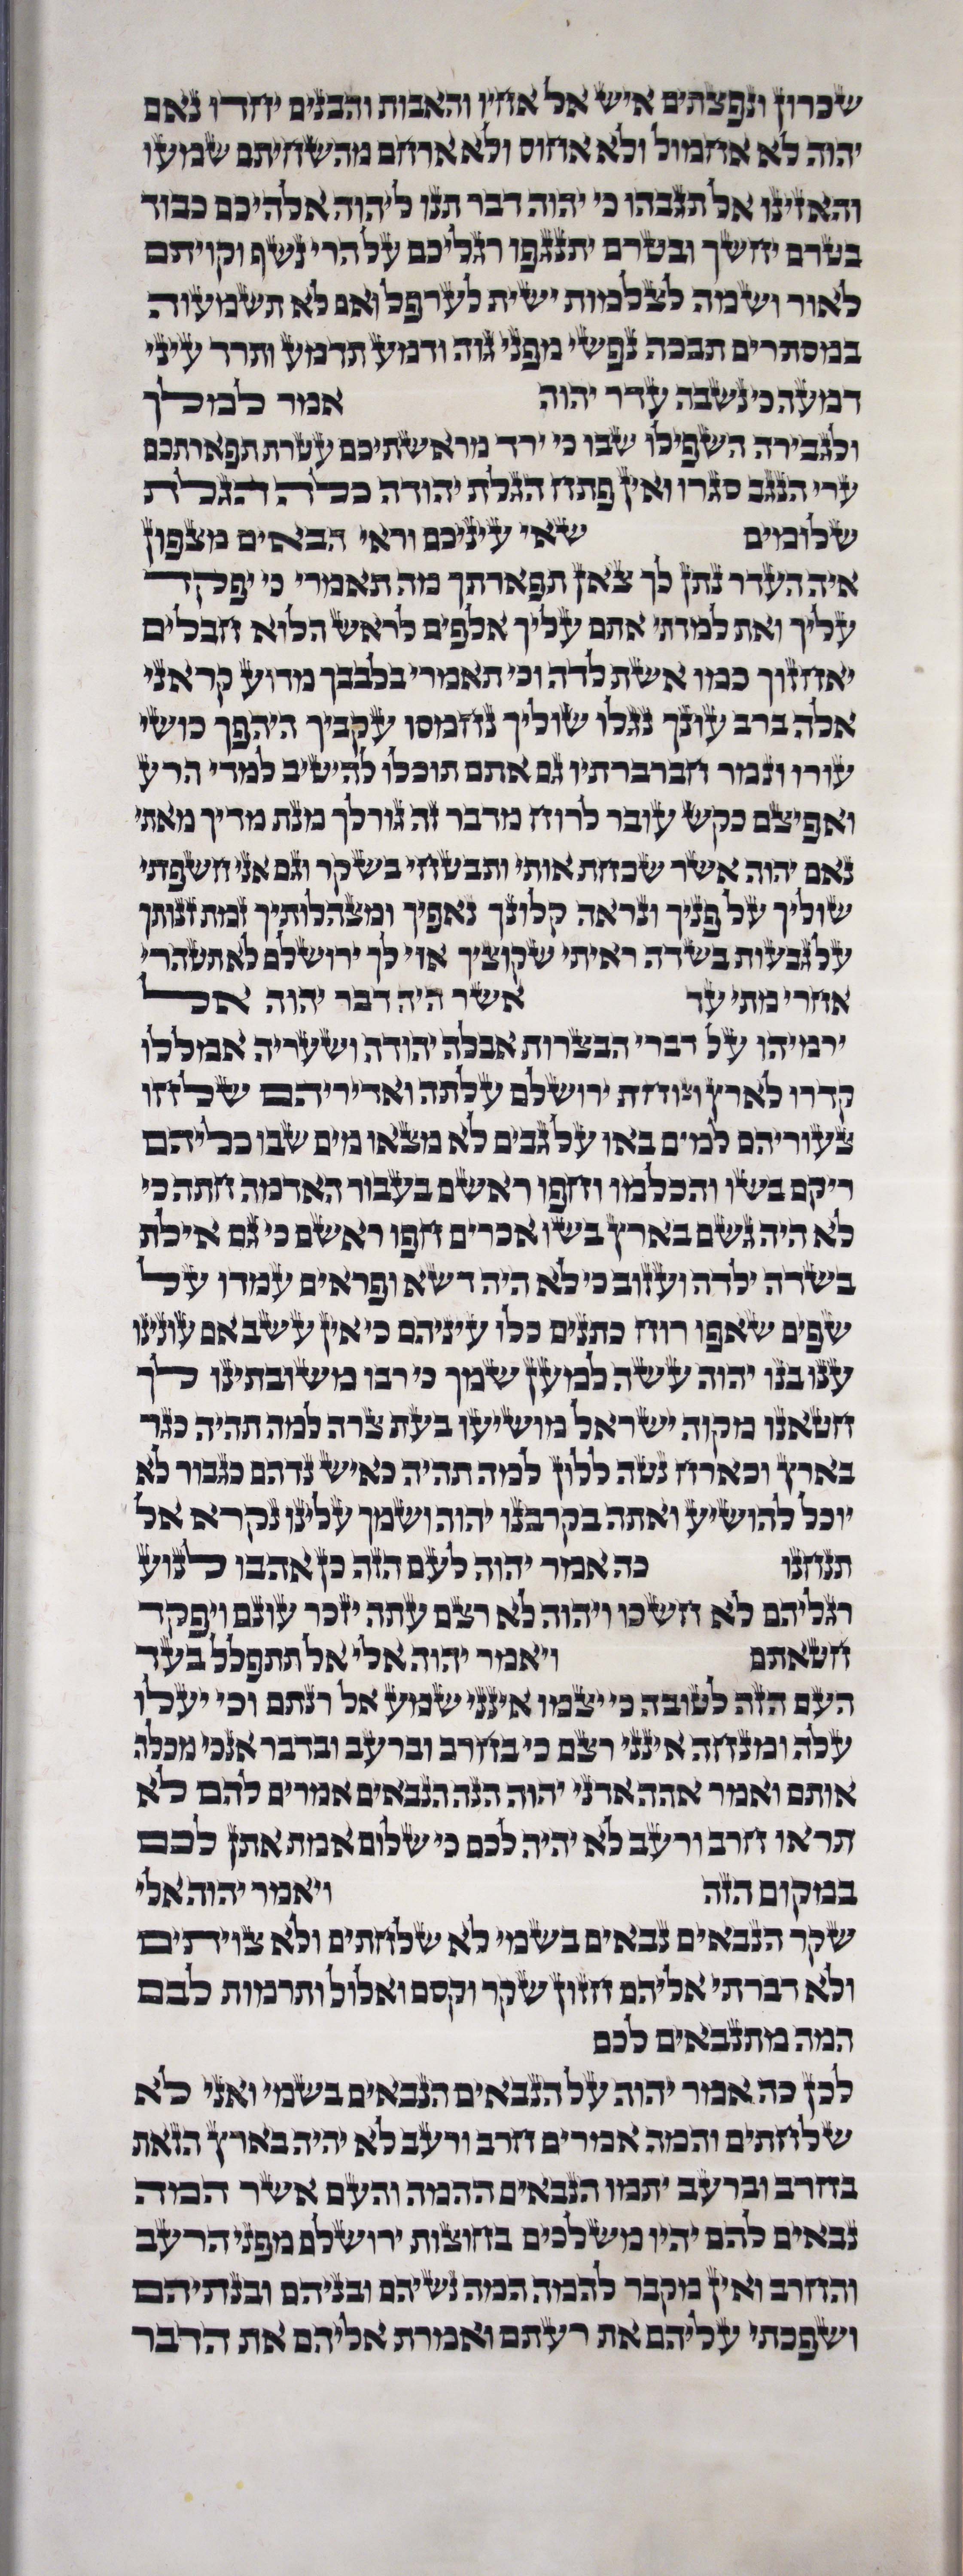 שכרון ונפצתים איש אל אחיו והאבות והבנים יחדו נאם
יהוה לא אחמול ולא אחוס ולא ארחם מהשחיתם שמעו
והאזינו אל תגבהו כי יהוה דבר תנו ליהוה אלהיכם כבוד
בטרם יחשך ובטרם יתנגפו רגליכם על הרי נשף וקויתם
לאור ושמה לצלמות ישית לערפל ואם לא תשמעוה
במסתרים תבכה נפשי מפני גוה ודמע תדמע ותרד עיני
דמעה כי נשבה עדר יהוה אמר למלך
ולגבירה השפילו שבו כי ירד מראשתיכם עטרת תפארתכם
ערי הנגב סגרו ואין פתח הגלת יהודה כלה הגלת
שלומים שאי עיניכם וראי הבאים מצפון
איה העדר נתן לך צאן תפארתך מה תאמרי כי יפקד
עליך ואת למדתי אתם עליך אלפים לראש הלוא חבלים
יאחזוך כמו אשת לדה וכי תאמרי בלבבך מדוע קראני
אלה ברב עונך נגלו שוליך נחמסו עקביך היהפך כושי
עורו ונמר חברברתיו גם אתם תוכלו להיטיב למדי הרע
ואפיצם כקש עובר לרוח מדבר זה גורלך מנת מדיך מאתי
נאם יהוה אשר שכחת אותי ותבטחי בשקר וגם אני חשפתי
שוליך על פניך ונראה קלונך נאפיך ומצהלותיך זמת זנותך
על גבעות בשדה ראיתי שקוציך אוי לך ירושלם לא תטהרי
אחרי מתי עד אשר היה דבר יהוה אל
ירמיהו על דברי הבצרות אבלה יהודה ושעריה אמללו
קדרו לארץ וצוחת ירושלם עלתה ואדיריהם שלחו
צעוריהם למים באו על גבים לא מצאו מים שבו כליהם
ריקם בשו והכלמו וחפו ראשם בעבור האדמה חתה כי
לא היה גשם בארץ בשו אכרים חפו ראשם כי גם אילת
בשדה ילדה ועזוב כי לא היה דשא ופראים עמדו על
שפים שאפו רוח כתנים כלו עיניהם כי אין עשב אם עונינו
ענו בנו יהוה עשה למען שמך כי רבו משובתינו לך
חטאנו מקוה ישראל מושיעו בעת צרה למה תהיה כגר
בארץ וכארח נטה ללון למה תהיה כאיש נדהם כגבור לא
יוכל להושיע ואתה בקרבנו יהוה ושמך עלינו נקרא אל
תנחנו כה אמר יהוה לעם הזה כן אהבו לנוע
רגליהם לא חשכו ויהוה לא רצם עתה יזכר עונם ויפקד
חטאתם ויאמר יהוה אלי אל תתפלל בעד
העם הזה לטובה כי יצמו אינני שמע אל רנתם וכי יעלו
עלה ומנחה אינני רצם כי בחרב וברעב ובדבר אנכי מכלה
אותם ואמר אהה אדני יהוה הנה הנבאים אמרים להם לא
תראו חרב ורעב לא יהיה לכם כי שלום אמת אתן לכם
במקום הזה ויאמר יהוה אלי
שקר הנבאים נבאים בשמי לא שלחתים ולא צויתים
ולא דברתי אליהם חזון שקר וקסם ואלול ותרמות לבם
המה מתנבאים לכם
לכן כה אמר יהוה על הנבאים הנבאים בשמי ואני לא
שלחתים והמה אמרים חרב ורעב לא יהיה בארץ הזאת
בחרב וברעב יתמו הנבאים ההמה והעם אשר המה
נבאים להם יהיו משלכים בחוצות ירושלם מפני הרעב
והחרב ואין מקבר להמה המה נשיהם ובניהם ובנתיהם
ושפכתי עליהם את רעתם ואמרת אליהם את הדבר